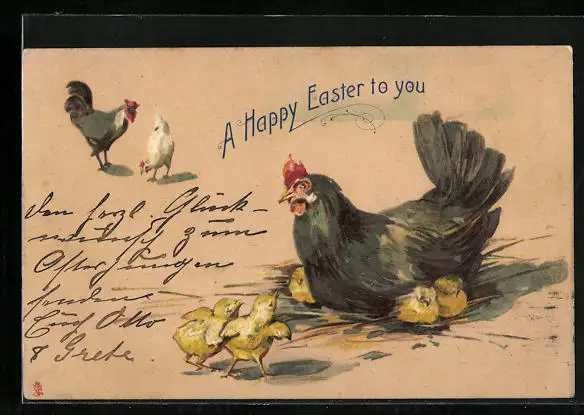 A Happy Easter to you
Den herzl. Glück-
wunsch zum
Osterjungen
senden
Euch Otto
& Grete.